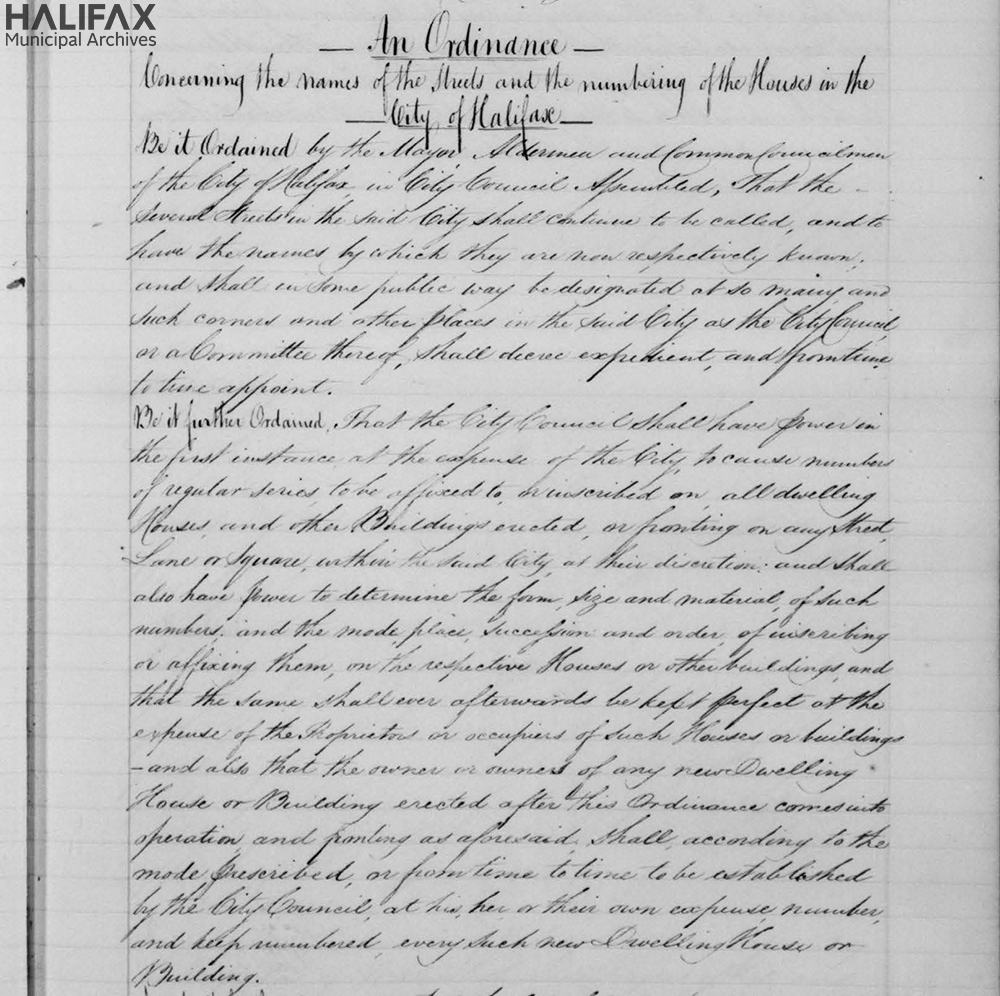 HALIFAX
Municipal Archives
— An Ordinance —
Concerning the names of the Streets and the numbering of the Houses in the
— City of Halifax —
Be it Ordained by the Mayor Aldermen and Common Councilmen
of the City of Halifax in City Council Assembled, That the
several Streets in the said City shall continue to be called, and to
have the names by which they are now respectively known,
and shall in some public way be designated at so many and
such corners and other places in the said City as the City Council,
or a Committee thereof, shall decree expedient, and from time
to time appoint.
Be it further Ordained, That the City Council shall have power in
the first instance, at the expense of the City, to cause numbers
of regular series to be affixed to, or inscribed on, all dwelling
Houses, and other Buildings erected, or fronting on any Street,
Lane or Square, within the said City, at their discretion: and shall
also have power to determine the form, size and material, of such
numbers, and the mode, place, succession and order, of inscribing
or affixing them, on the respective Houses or other buildings, and
that the same shall ever afterwards be kept perfect at the
expense of the Proprietors or occupiers of such Houses or buildings
– and also that the owner or owners of any new Dwelling
House or Building erected after this Ordinance comes into
operation, and fronting as aforesaid, shall, according to the
mode prescribed, or from time to time to be established
by the City Council, at his, her or their own expense, number,
and keep numbered, every such new Dwelling House or
Building.